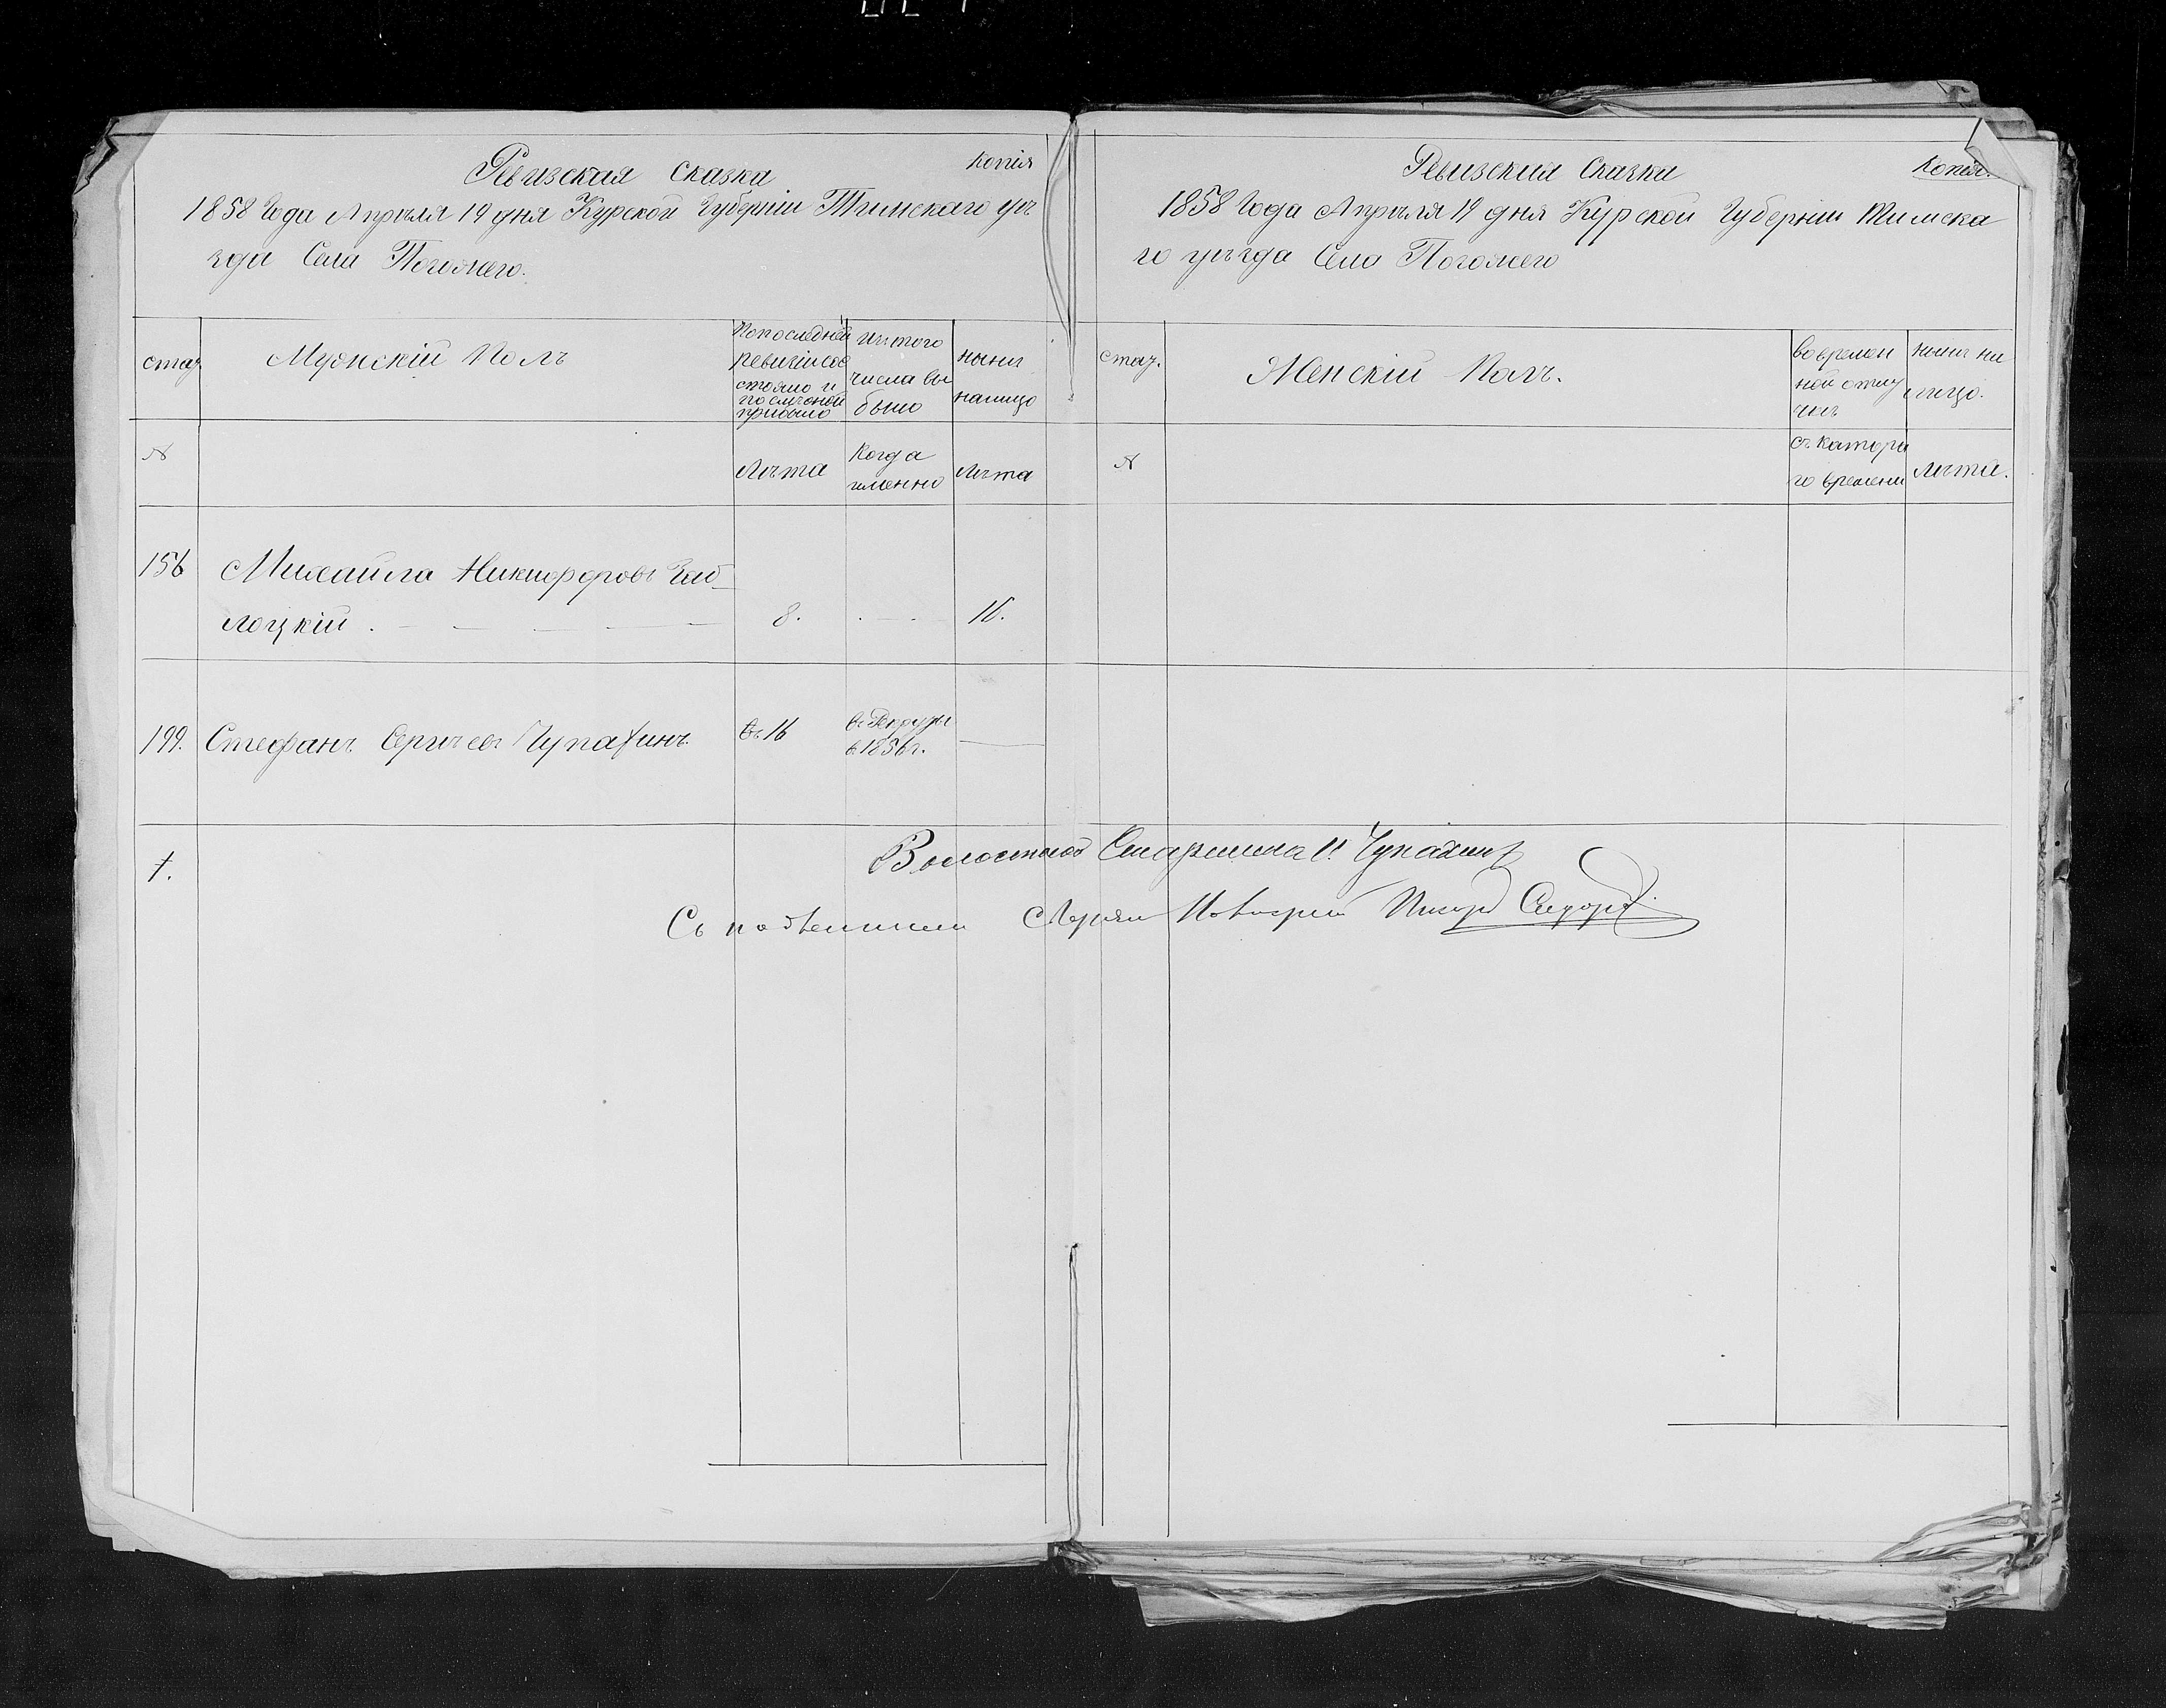 Копія
Ревизская сказка
1858 Года Апрѣля 19 дня Курской Губерніи Тимскаго уѣ
зда Села Погожаго.
стат
Мужскій Полъ
По последней
ревизіи сос
стояло и
после оной
прибыло
Изъ того
числа вы
было
нынѣ
налицо
№
Лѣта
Когда
именно
Лѣта
156
Михайла Никифоровъ
лоцкій . — — — —
8.
16.
199.
Стефанъ Сергѣевъ Чупахинъ.
въ 16
въ Рекруты
в. 1856 г.
—
Копія.
Ревизская Сказка
1858 Года Апрѣля 19 дня Курской Губерніи Тимска
го уѣзда Села Погожаго
стат.
Женскій Полъ.
во времен
ной отлу
чкѣ
нынѣ на
лицо.
№
съ котора
го времени
лѣта.
Волостной Старшина И. Чупахинъ
Съ подлиннымъ Писарь